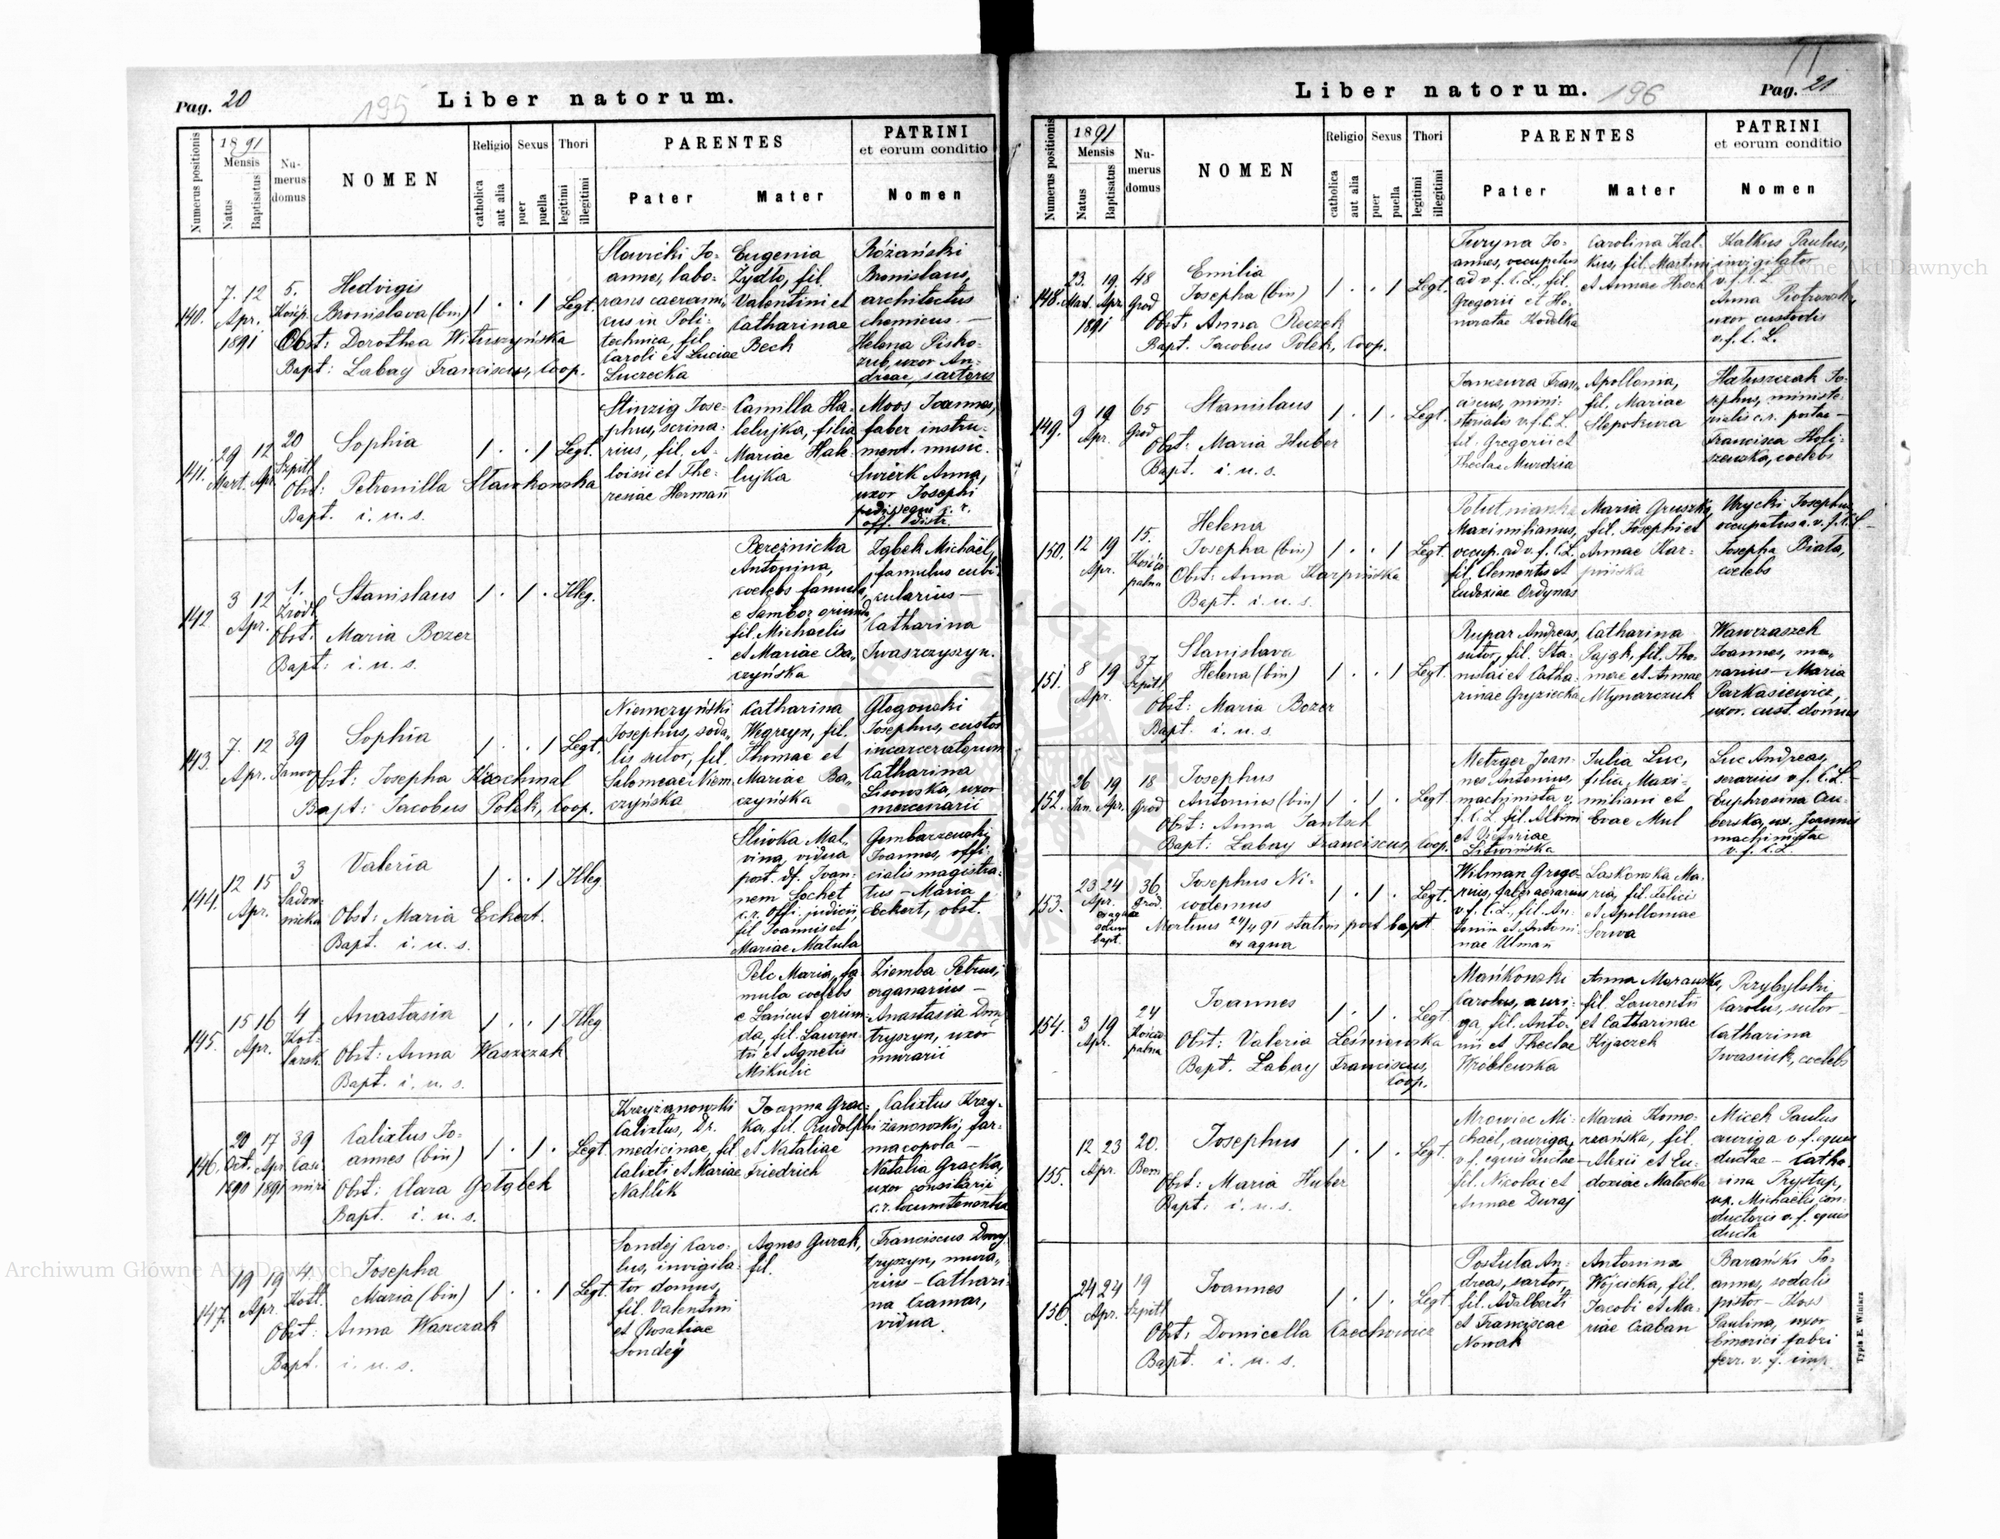 Pag. 20
195
Liber natorum.
Numerus positionis
1891
Mensis
Natus
Baptisatus
Numerus domus
NOMEN
Religio
catholica
aut alia
Sexus
puer
puella
Thori
legitimi
illegitimi
PARENTES
Pater
Mater
PATRINI
et eorum conditio
Nomen
140.
7. 12
Apr.
1891
5.
Hedvigis
Bronislava (bin)
1 . . 1 Legt.
Obst: Dorothea Wituszyńska
Bapt: Łabay Franciscus, Coop.
Sławicki Jo-
annes, labo-
rans
cus in Poli-
technica, fil.
Caroli et Luciae
Luczecka
Eugenia
Żydło, fil.
Valentini et
Catharinae
Beck
Różański
Bronislaus,
architectus
chemicus. —
Helena Pisko-
zub, uxor An-
dreae, sartoris
141.
29 12
Mart. Apr.
20
Szpitl.
Sophia
1 . . 1 Legt.
Obst: Petronilla Sławkowska
Bapt. i. u. s.
Stinzig Jose-
phus, scrina-
rius, fil. A-
loisii et The-
resiae Hermañ
Camilla Ha-
lelujka, filia
Mariae Hale-
lujka
Moos Joannes,
faber instru-
ment. music.
Świerk Anna,
uxor Josephi
pedissequi c. r.
off. distr.
142
3 12
Apr.
1.
Źródl.
Stanislaus
1 . 1 . Illeg.
Obst: Maria Bozer
Bapt: i. u. s.
Bereźnicka
Antonina,
coelebs famula,
e Sambor oriunda
fil. Michaelis
et Mariae Ba-
czyńska
Ząbek Michael,
famulus cubi-
cularius —
Catharina
Iwaszczyszyn.
143.
7. 12
Apr.
39
Janow.
Sophia
1 . . 1 Legt.
Obst: Josepha Krochmal
Bapt: Jacobus Polek, Coop.
Niemczyński
Josephus, soda-
lis sutor, fil.
Salomeae Niem-
czyńska
Catharina
Węgrzyn, fil.
Thomae et
Mariae Ba-
czyńska
Głogowski
Josephus, custos
incarceratorum
Catharina
Lisowska, uxor
mercenarii
144.
12 15
Apr.
3
Sadow-
nicka
Valeria
1 . . 1 Illeg
Obst: Maria Eckert.
Bapt. i. u. s.
Śliwka Mal-
vina, vidua
post. df. Joan-
nem Sochet
c. r. offi. judicii
fil Joannis et
Mariae Matula
Gembarzewski
Joannes, offi-
cialis magistra-
tus — Maria
Eckert, obst.
145.
15 16
Apr.
4
Kot-
larsk.
Anastasia
1 . . 1 Illeg
Obst: Anna Waszczak
Bapt. i. u. s.
Pelc Maria, fa-
mula coelebs
e Łańcut oriun-
da, fil. Lauren-
tii et Agnetis
Mikulic
Ziemba Petrus,
organarius —
Anastasia Dmy-
tryszyn, uxor
murarii
146.
20 17
Oct. Apr.
1890 1891
39
Casi-
miri
Calixtus Jo-
annes (bin)
1 . 1 . Legt.
Obst: Clara Gołąbek
Bapt. i. u. s.
Krzyżanowski
Calixtus, Dr.
medicinae, fil
Calixti et Mariae
Nahlik
Joanna Grac-
ka, fil. Rudolphi
et Nataliae
Friedrich
Calixtus Krzy-
żanowski, far-
macopola —
Natalia Gracka,
uxor consiliarii
c. r. locumtenentiae
147.
19 19
Apr.
4.
Kotl.
Josepha
Maria (bin)
1 . . 1 Legt.
Obst: Anna Waszczak
Bapt. i. u. s.
Sondej Caro-
lus, invigila-
tor domus,
fil. Valentini
et Rosaliae
Sondej
Agnes Gurak,
fil.
Franciscus Dmy-
tryszyn, mura-
rius — Cathari-
na Czamar,
vidua.
Liber natorum.
196
Pag. 21
Numerus positionis
1891
Mensis
Natus
Baptisatus
Numerus domus
NOMEN
Religio
catholica
aut alia
Sexus
puer
puella
Thori
legitimi
illegitimi
PARENTES
Pater
Mater
PATRINI
et eorum conditio
Nomen
148.
23. 19.
Mart. Apr.
1891
48
Grod
Emilia
Josepha (bin)
1 . . 1 Legt.
Obst: Anna Reczek
Bapt. Jacobus Polek, Coop.
Turyna Jo-
annes, occupatus
ad v. f. C. L., fil.
Gregorii et Ho-
noratae Kodelka
Carolina Kal-
kus, fil. Martini
et Annae Hrech
Kalkus Paulus,
invigilator
v. f. C. L.
Anna Piotrowsk.
uxor custodis
v. f. C. L.
149.
9 19
Apr.
65
Grod
Stanislaus
1 . 1 . Legt.
Obst: Maria Huber
Bapt. i. u. s.
Janczura Fran-
ciscus, mini-
sterialis v. f. C. L.
fil. Gregorii et
Theclae Murdzia
Apollonia,
fil. Mariae
Ślepokura
Hałuszczak Jo-
sephus, ministe-
rialis c. r. postae —
Francisca Holi-
szewska, coelebs
150.
12 19
Apr.
15.
Kości
palna
Helena
Josepha (bin)
1 . . 1 Legt.
Obst: Anna Karpińska
Bapt. i. u. s.
Maximilianus,
occup. ad v. f. C. L.
fil. Clementis et
Eudoxiae Ordynas
Maria Gruszka,
fil. Josephi et
Annae Kar-
pińska
Urycki Josephus,
occupatus a. v. f. C. L. —
Josepha Biała,
coelebs
151.
8 19
Apr.
37
Szpitl.
Stanislava
Helena (bin)
1 . . 1 Legt.
Obst: Maria Bozer
Bapt. i. u. s.
Rupar Andreas,
sutor, fil. Sta-
nislai et Catha-
rinae Gryziecka
Catharina
Pająk, fil. Tho-
mae et Annae
Młynarczuk
Wawrzaszek
Joannes, mu-
rarius — Maria
Parkasiewicz,
uxor. cust. domus
152.
26 19
Jan. Apr.
18
Grod
Josephus
Antonius (bin)
1 . 1 . Legt
Obst: Anna Jantsch
Bapt: Łabay Franciscus, Coop.
Metzger Joan-
nes Antonius,
machinista v.
f. C. L. fil. Albini
et Victoriae
Litwińska
Julia Luc,
filia Maxi-
miliani et
Evae Mul
Luc Andreas,
serarius v. f. C. L. —
Euphrosina Cu-
berska, ux. Joannis
machinistae
v. f. C. L.
153.
23 24
Apr.
ex aqua
solum
bapt.
36
Grod.
Josephus Ni-
codemus
1 . 1 . Legt.
Mortuus 24/4 91 statim post bapt
ex aqua
Wilman Grego-
rius, faber aerarius
v. f. C. L., fil. An-
tonii et Antoni-
nae Ulmañ
Laskowska Ma-
ria, fil. Felicis
et Apolloniae
Serwa
154.
3 19
Apr.
24
Kości
palna
Joannes
1 . 1 . Legt
Obst: Valeria Leśniowska
Bapt. Łabay Franciscus,
Coop.
Mańkowski
Carolus, auri-
ga, fil. Anto-
nii et Theclae
Wróblewska
Anna Murawska,
fil. Laurentii
et Catharinae
Kijaczek
Przybylski
Carolus, sutor —
Catharina
Iwasiuk, coelebs
155.
12 23
Apr.
20.
Bem
Josephus
1 . 1 . Legt.
Obst: Maria Huber
Bapt: i. u. s.
Mrowiec Mi-
chael, auriga,
v. f. equis ductae —
fil. Nicolai et
Annae Duraj
Maria Komo-
rzańska, fil.
Alexii et Eu-
doxiae Małecka
Micek Paulus
auriga v. f. equis
ductae — Catha-
rina Prystup,
ux. Michaelis con-
ductoris v. f. equis
ducta
156.
24 24
Apr
19
Szpitl
Joannes
1 . 1 . Legt
Obst: Domicella Czechowicz
Bapt. i. u. s.
Postuła An-
dreas, sartor,
fil. Adalberti
et Franciscae
Nowak
Antonina
Wójcicka, fil.
Jacobi et Ma-
riae Czaban
Barański Jo-
annes, sodalis
pistor — Koss
Paulina, uxor
Emerici fabri
ferr. v. f. imp.
Typis E. Winiarz
Archiwum Główne Akt Dawnych
Archiwum Główne Akt Dawnych